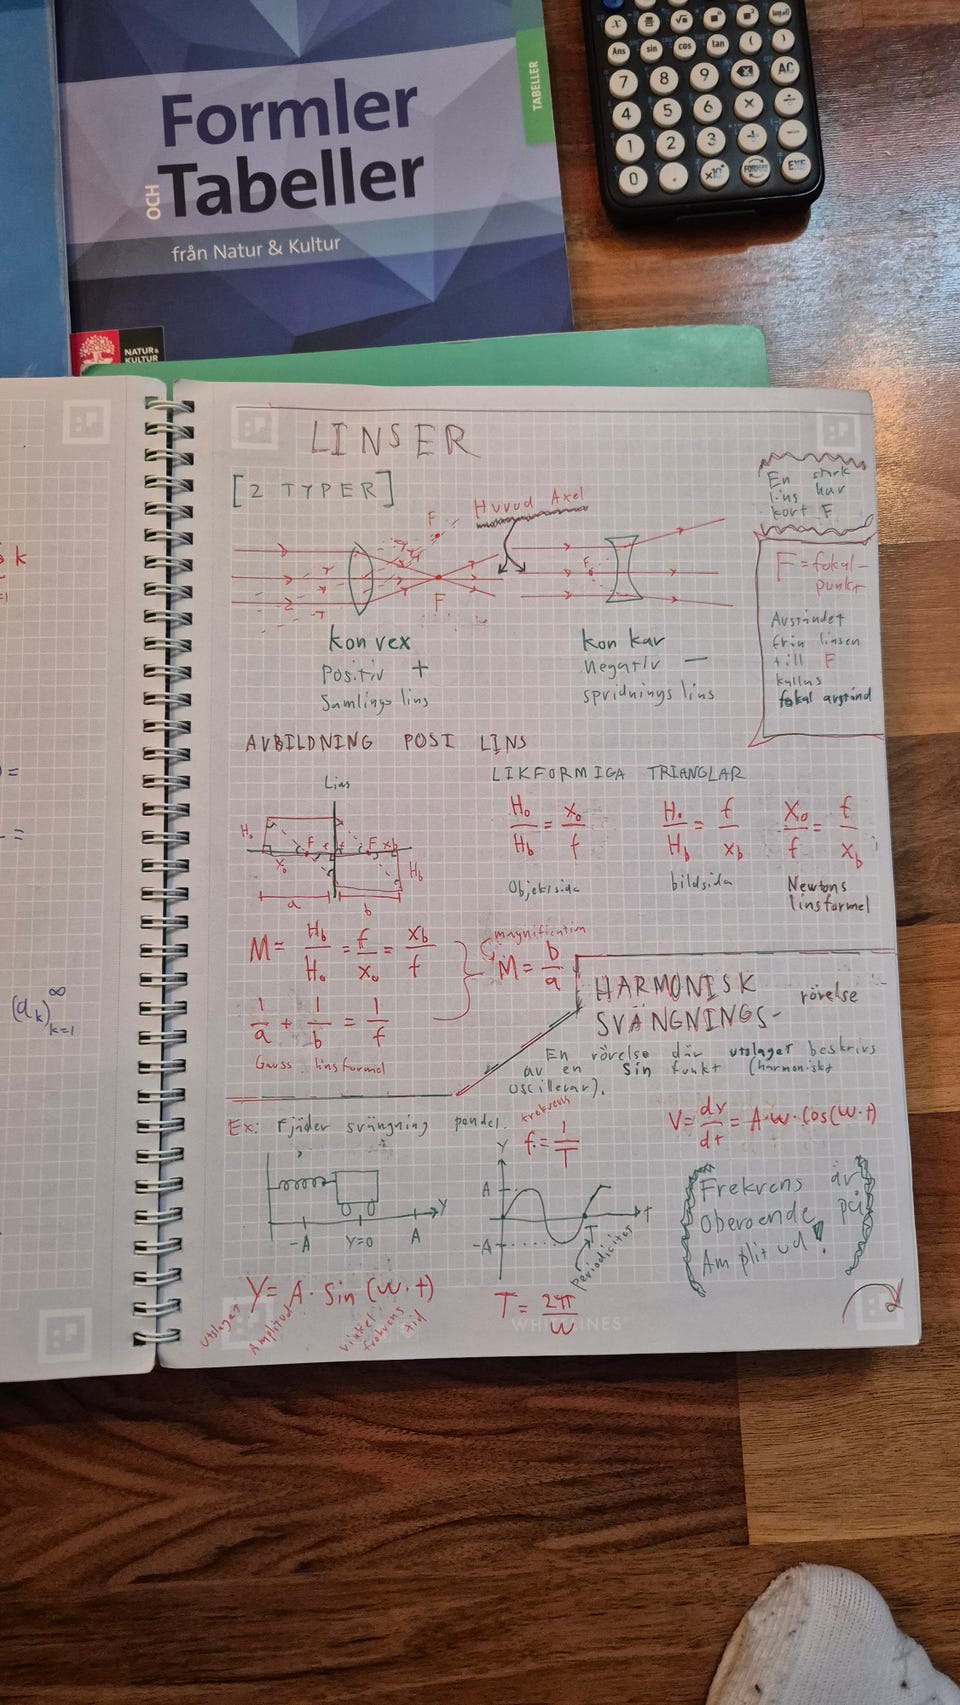 Formler
OCH Tabeller
från Natur & Kultur
TABELLER
NATUR &
KULTUR
x
Ans sin cos tan ( )
7 8 9 AC
4 5 6 × ÷
1 2 3 + −
0 . ×10 FORMAT EXE
k
=1
=
=
(a_k)^∞_{k=1}
LINSER
[2 TYPER]
Huvud Axel
F
F
F
En stark
lins har
kort F
F = fokal-
punkt
Avståndet
från linsen
till F
kallas
fokal avstånd
konvex
Positiv +
Samlings lins
kon kav
Negativ —
spridnings lins
AVBILDNING POSI LINS
Lins
H₀
F f f F x_b
x₀
H_b
a
b
LIKFORMIGA TRIANGLAR
H₀/H_b = x₀/f
Objektsida
H₀/H_b = f/x_b
bildsida
x₀/f = f/x_b
Newtons
linsformel
M = H_b/H₀ = f/x₀ = x_b/f
magnification
M = b/a
1/a + 1/b = 1/f
Gauss linsformel
HARMONISK
SVÄNGNINGS-
rörelse
En rörelse där utslaget beskrivs
av en sin funkt (harmoniskt
oscillerar).
Ex: Fjäder svängning pendel.
frekvens
f = 1/T
V = dy/dt = A·w·cos(w·t)
-A
Y=0
A
Y
Y
A
-A
T
t
periodicitet
Frekvens är
oberoende på
Amplitud!
Y = A · sin(w·t)
utslaget
Amplitud
vinkel
frekvens
tid
T = 2π/w
WHITELINES